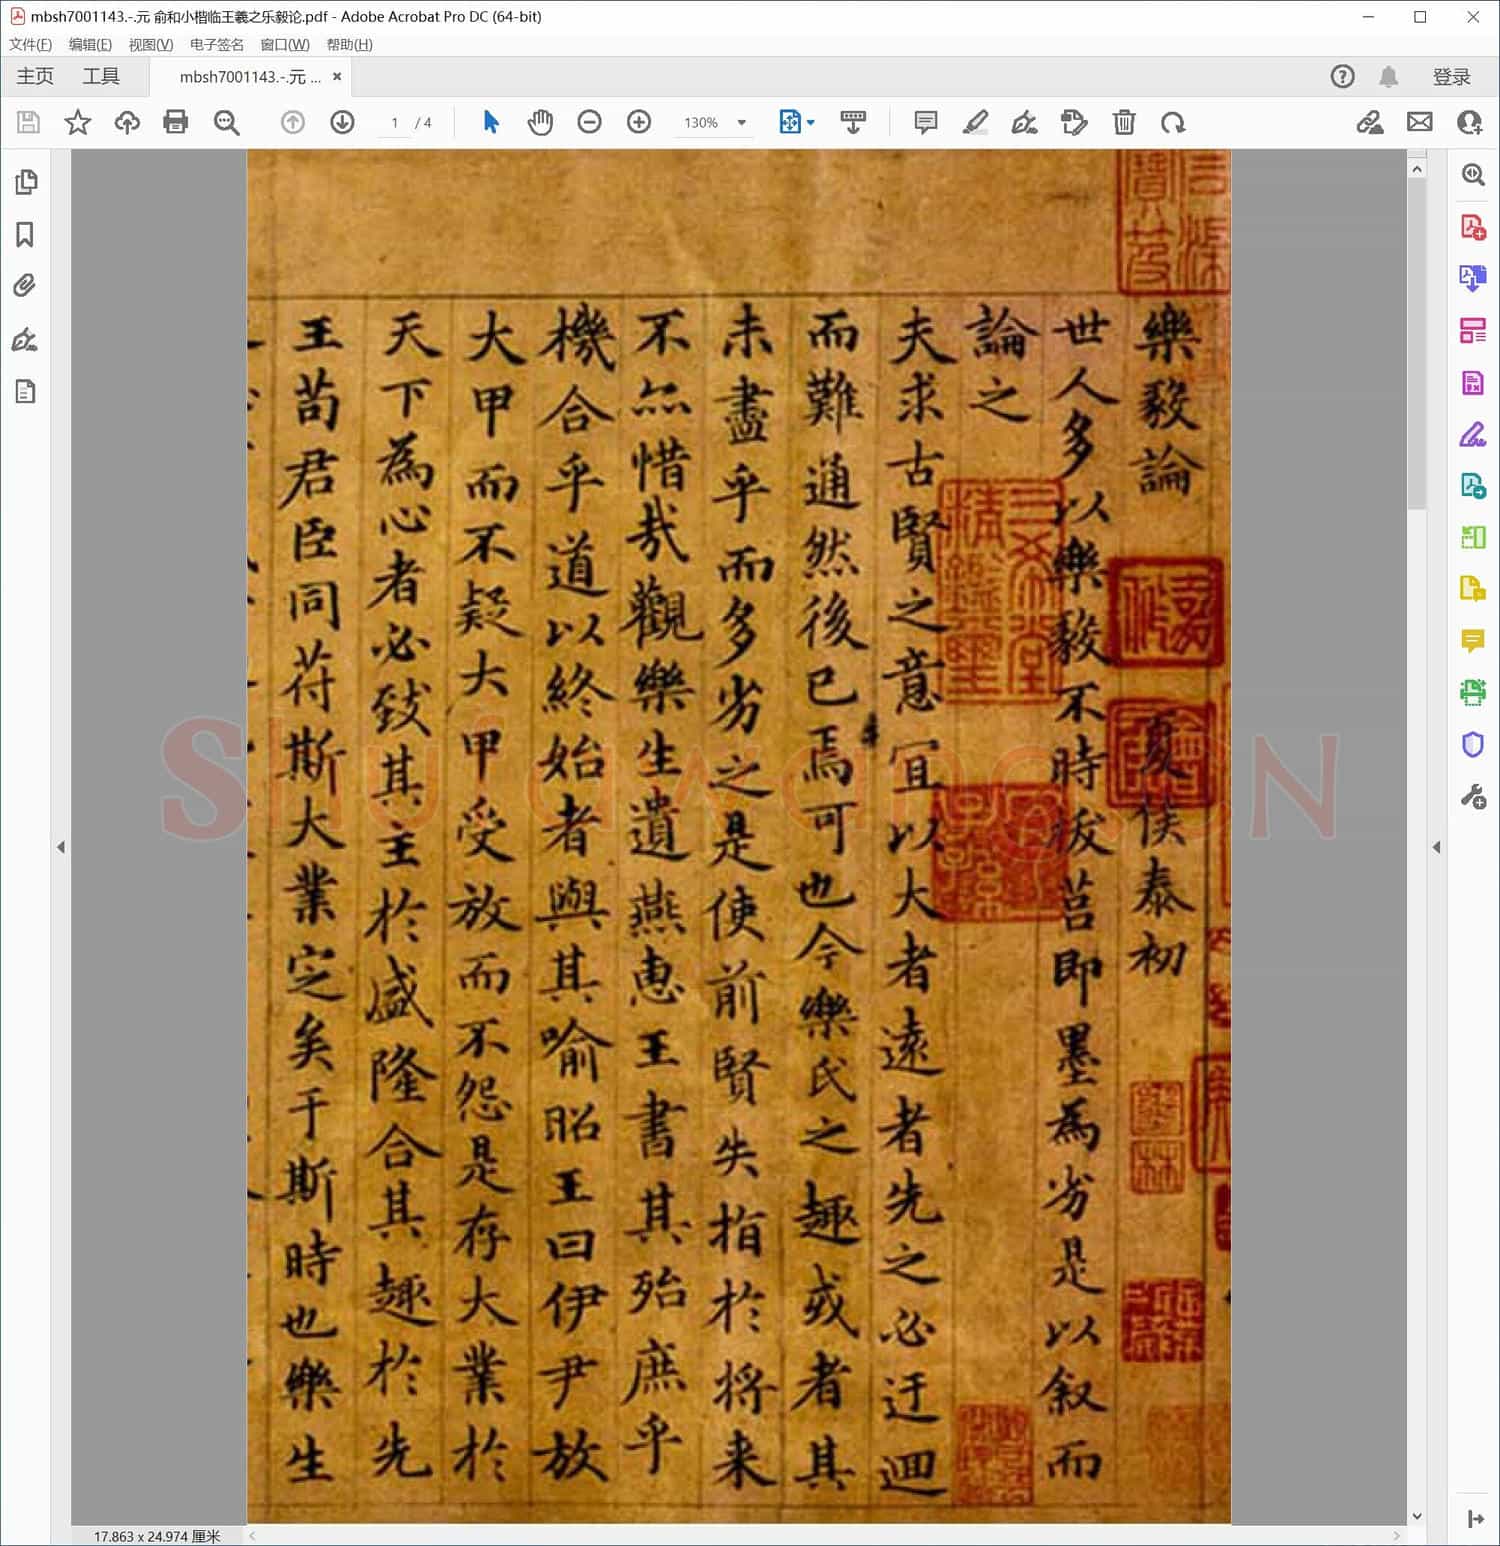 mbsh7001143.-.元 俞和小楷临王羲之乐毅论.pdf - Adobe Acrobat Pro DC (64-bit)
文件(F) 编辑(E) 视图(V) 电子签名 窗口(W) 帮助(H)
主页 工具 mbsh7001143.-.元 ... × 登录
1 / 4 130%
樂毅論 夏侯泰初
世人多以樂毅不時拔莒即墨為劣是以叙而
論之
夫求古賢之意宜以大者遠者先之必迂迴
而難通然後已焉可也今樂氏之趣或者其
未盡乎而多劣之是使前賢失指於将来
不然惜哉觀樂生遺燕惠王書其殆庶乎
機合乎道以終始者與其喻昭王曰伊尹放
大甲而不疑大甲受放而不怨是存大業於
天下為心者必致其主於盛隆合其趣於先
王苟君臣同苻斯大業定矣于斯時也樂生
Shufawang.CN
17.863 x 24.974 厘米